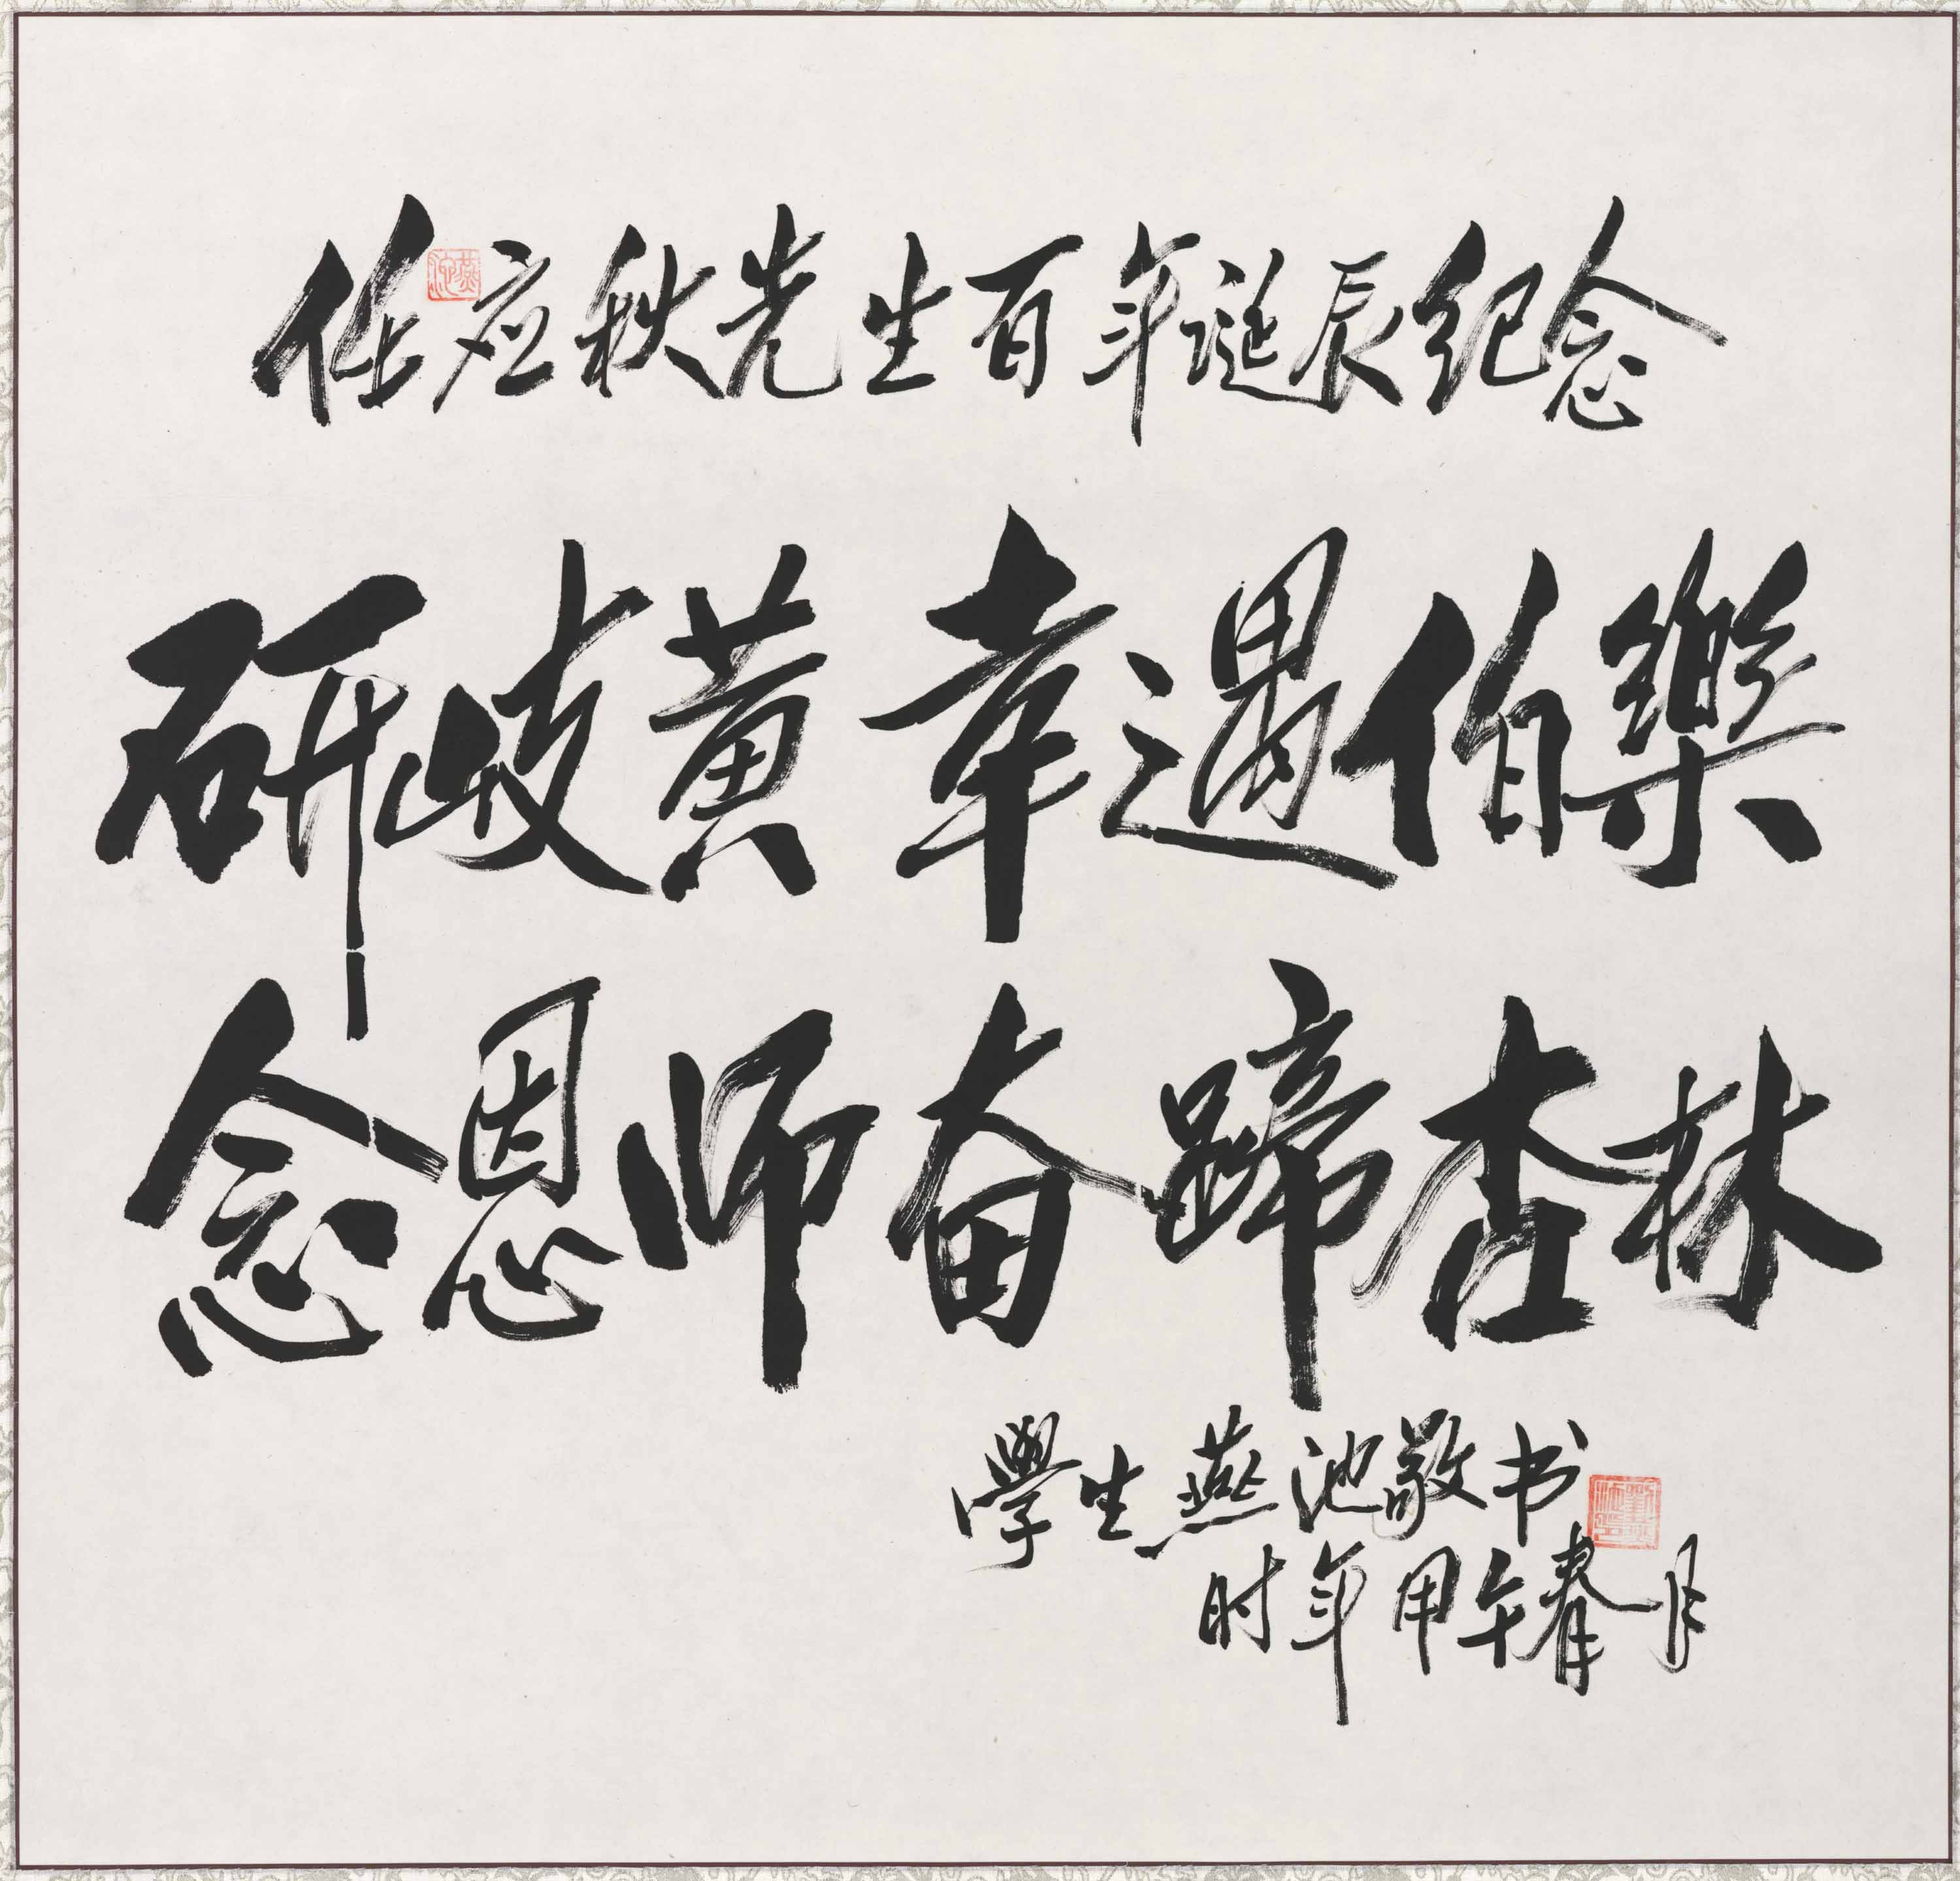 任应秋先生百年诞辰纪念
研岐黄幸遇伯樂
念恩师奋蹄杏林
學生燕池敬书
时年甲午春月
燕池